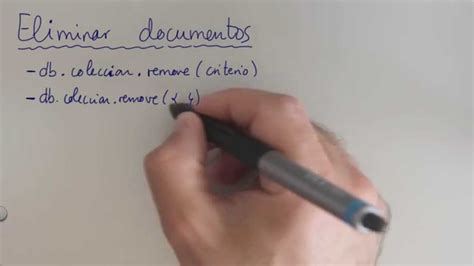 Eliminar documentos
- db.coleccion.remove (criterio)
- db.coleccion.remove ({ })